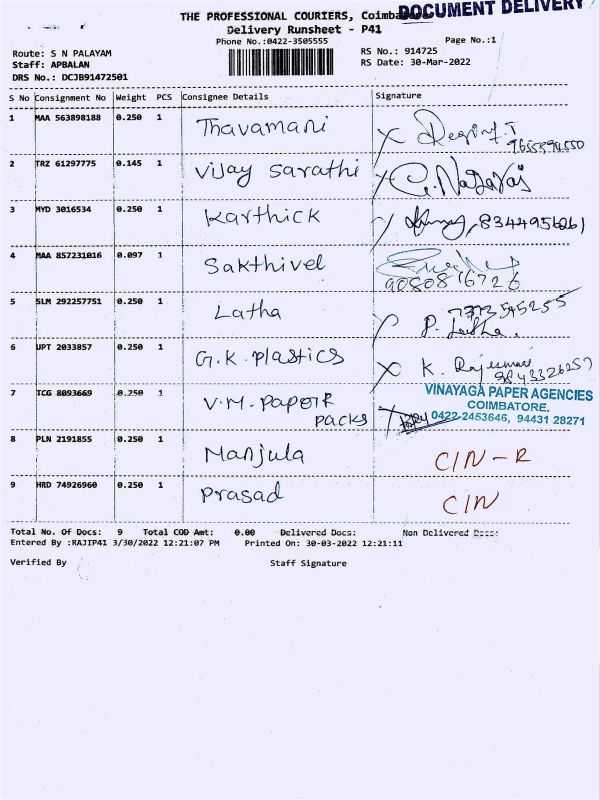 DOCUMENT DELIVERY
THE PROFESSIONAL COURIERS,
Delivery Runsheet - P41
Phone No.:0422-3505555 Page No.:1
Route: S N PALAYAM RS No.: 914725
Staff: APBALAN RS Date: 30-Mar-2022
DRS No.: DCJB91472501
S No Consignment No Weight PCS Consignee Details Signature
1 MAA 563898188 0.250 1 Thavamani
2 TRZ 61297775 0.145 1 Vijay Sarathi
3 MYD 3016534 0.250 1 Karthick 8344956261
4 MAA 857231016 0.097 1 Sakthivel
9080816726
5 SLM 292257751 0.250 1 Latha
P. Latha.
6 UPT 2033857 0.250 1 G.K. Plastics
9843326257
7 TCG 8093669 0.250 1 V.M. Paper
Packs
VINAYAGA PAPER AGENCIES
COIMBATORE.
0422-2453646, 94431 28271
8 PLN 2191855 0.250 1 Manjula C/N - R
9 HRD 74926960 0.250 1 Prasad C/N
Total No. Of Docs: 9 Total COD Amt: 0.00 Delivered Docs: Non Delivered Docs:
Entered By :RAJIP41 3/30/2022 12:21:07 PM Printed On: 30-03-2022 12:21:11
Verified By Staff Signature